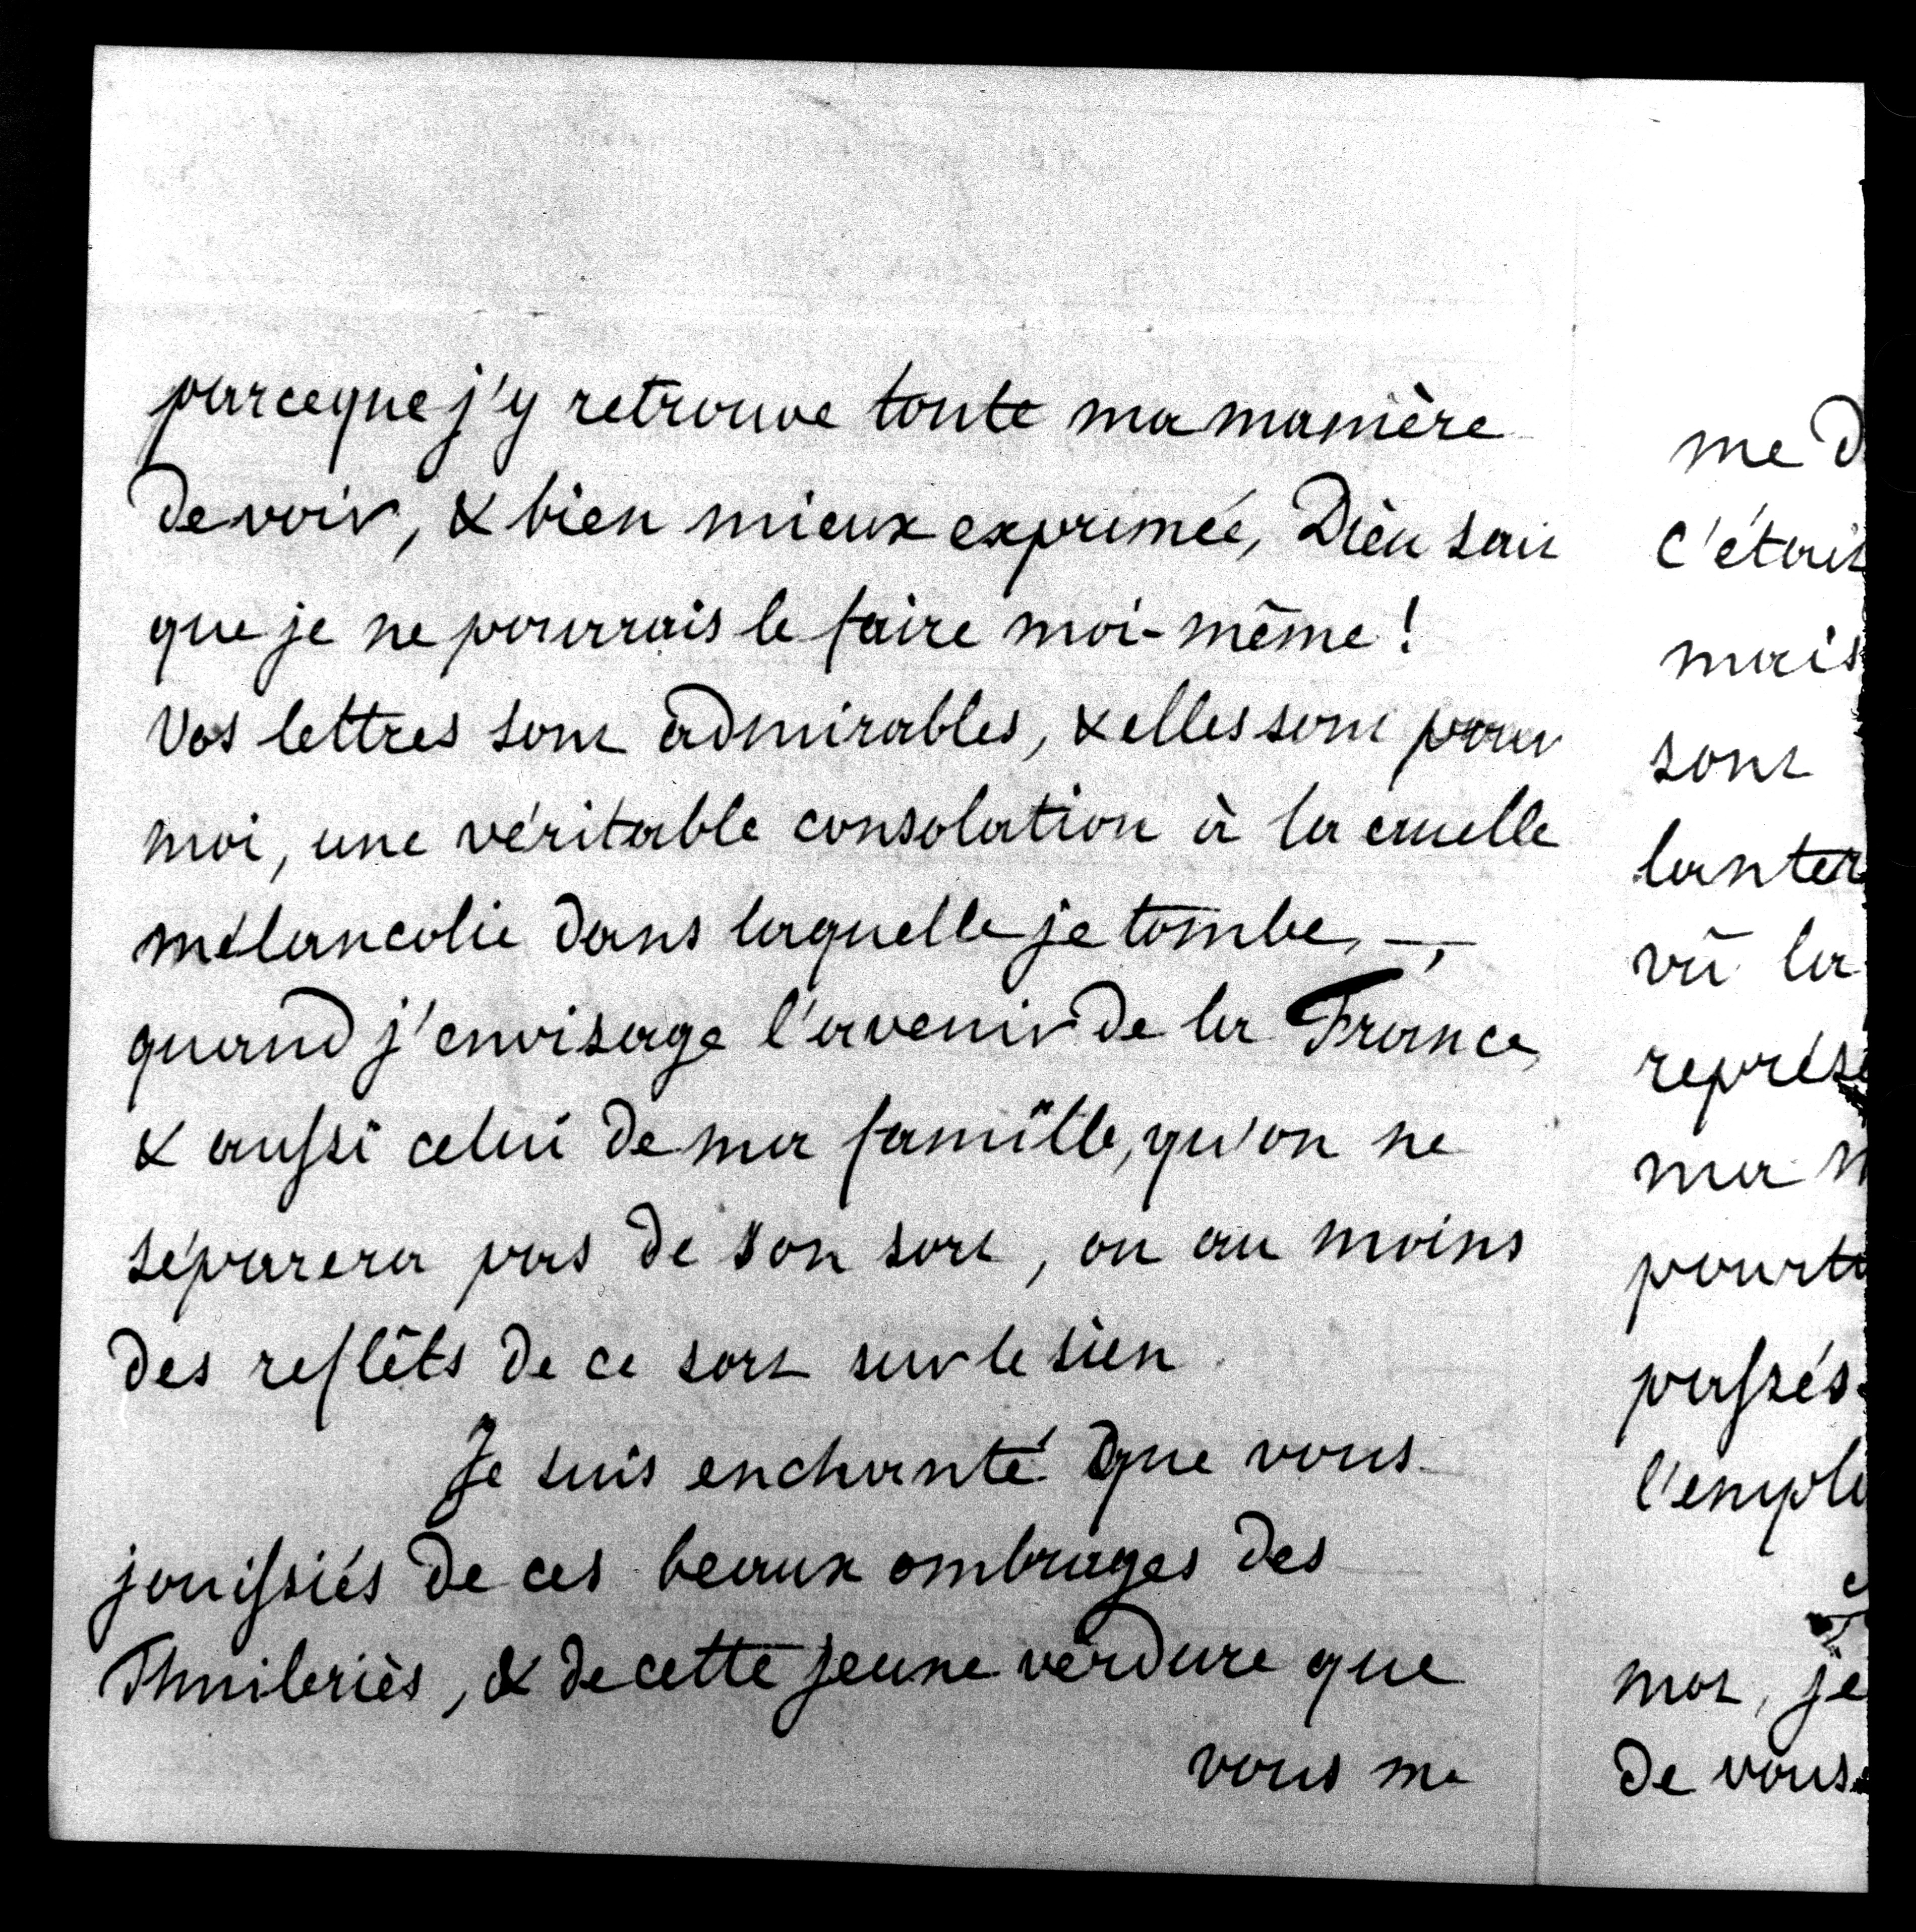 parceque j'y retrouve toute ma manière
de voir, & bien mieux exprimée, Dieu sait
que je ne pourrais le faire moi-même!
Vos lettres sont admirables, & elles sont pour
moi, une véritable consolation à la cruelle
mélancolie dans laquelle je tombe, —,
quand j'envisage l'avenir de la France,
& aussi celui de ma famille, qu'on ne
séparera pas de son sort, ou au moins
des reflêts de ce sort sur le sien.
Je suis enchanté que vous
jouissiés de ces beaux ombrages des
Thuileriès, & de cette jeune verdure que
vous me
me d
c'étoit
mais
sont
lanter
vû la
représe
ma
pourta
passés
l'emplo
mot, je
de vous